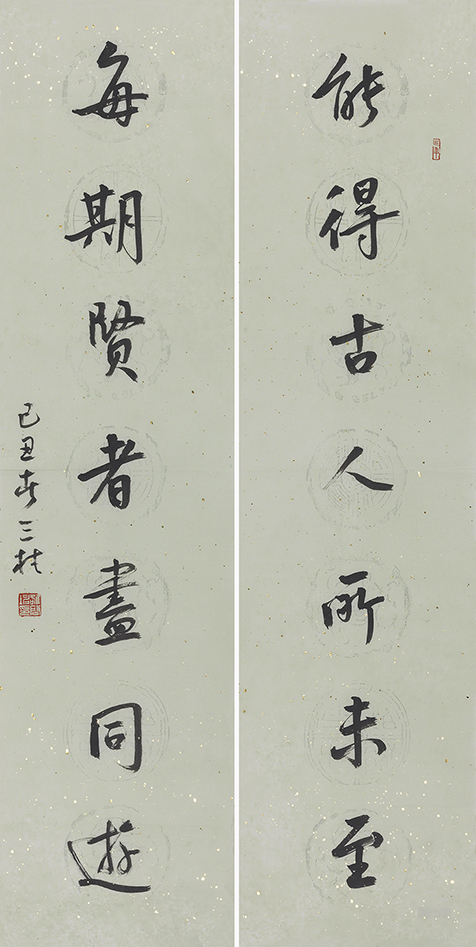 能得古人所未至
每期賢者盡同遊
己丑春三桂